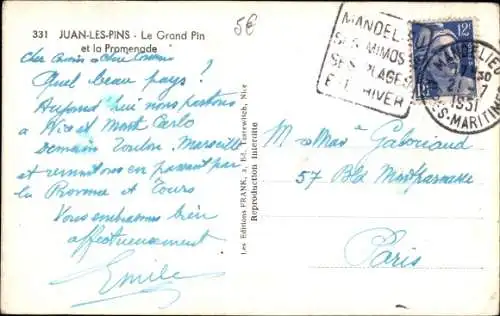 331 JUAN-LES-PINS - Le Grand Pin
et la Promenade
5€
Quel beau pays !
nous partons
à Nice et Monte Carlo
demain Toulon, Marseille
et remontons en passant par
la Provence et Tours
Vous embrassons bien
affectueusement
Emile
Les Editions FRANK, 2, Ed. Tzarewitch, Nice
Reproduction interdite
MANDEL
SES MIMOS
SES PLAGES
ETE HIVER
12F
MANDELIEU
1951
S-MARITIMES
M et Max Gaboriaud
57 Bld Montparnasse
Paris